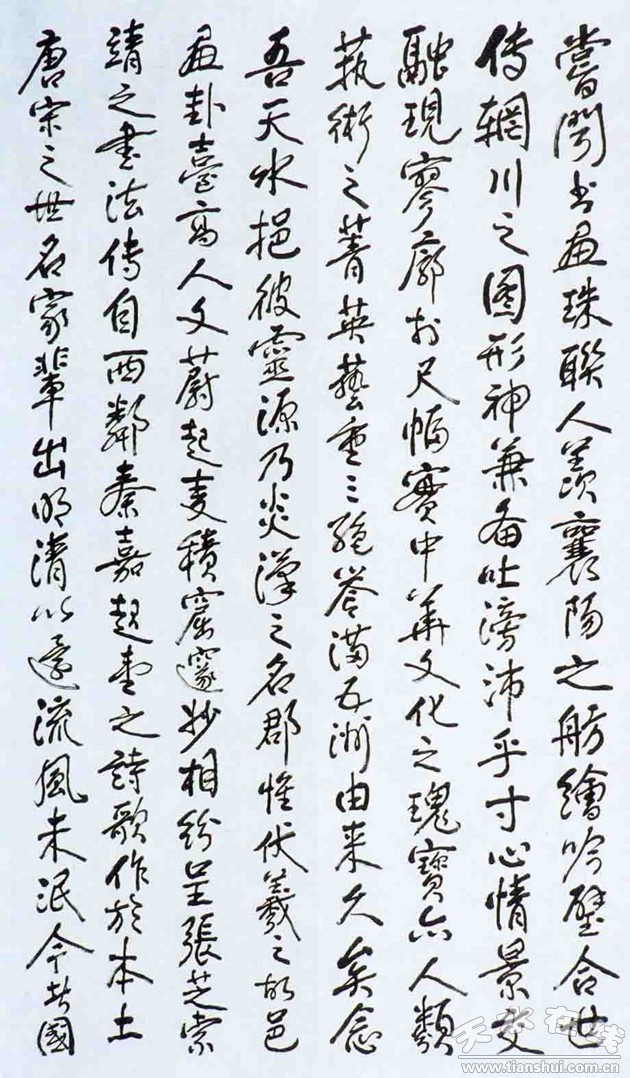 嘗聞书畫珠聯人羨襄陽之舫繪吟璧合世
传輞川之图形神兼备吐滂沛乎寸心情景交
融現寥廓於尺幅實中華文化之瑰寶亦人類
藝術之菁英藝重三絕譽满五洲由来久矣念
吾天水挹彼靈源乃炎漢之名郡惟伏羲之故邑
畫卦臺高人文蔚起麦積窟邃妙相紛呈張芝索
靖之書法傳自西鄰秦嘉趙壹之詩歌作於本土
唐宋之世名家輩出明清以還流風未泯今者國
天水在线
www.tianshui.com.cn